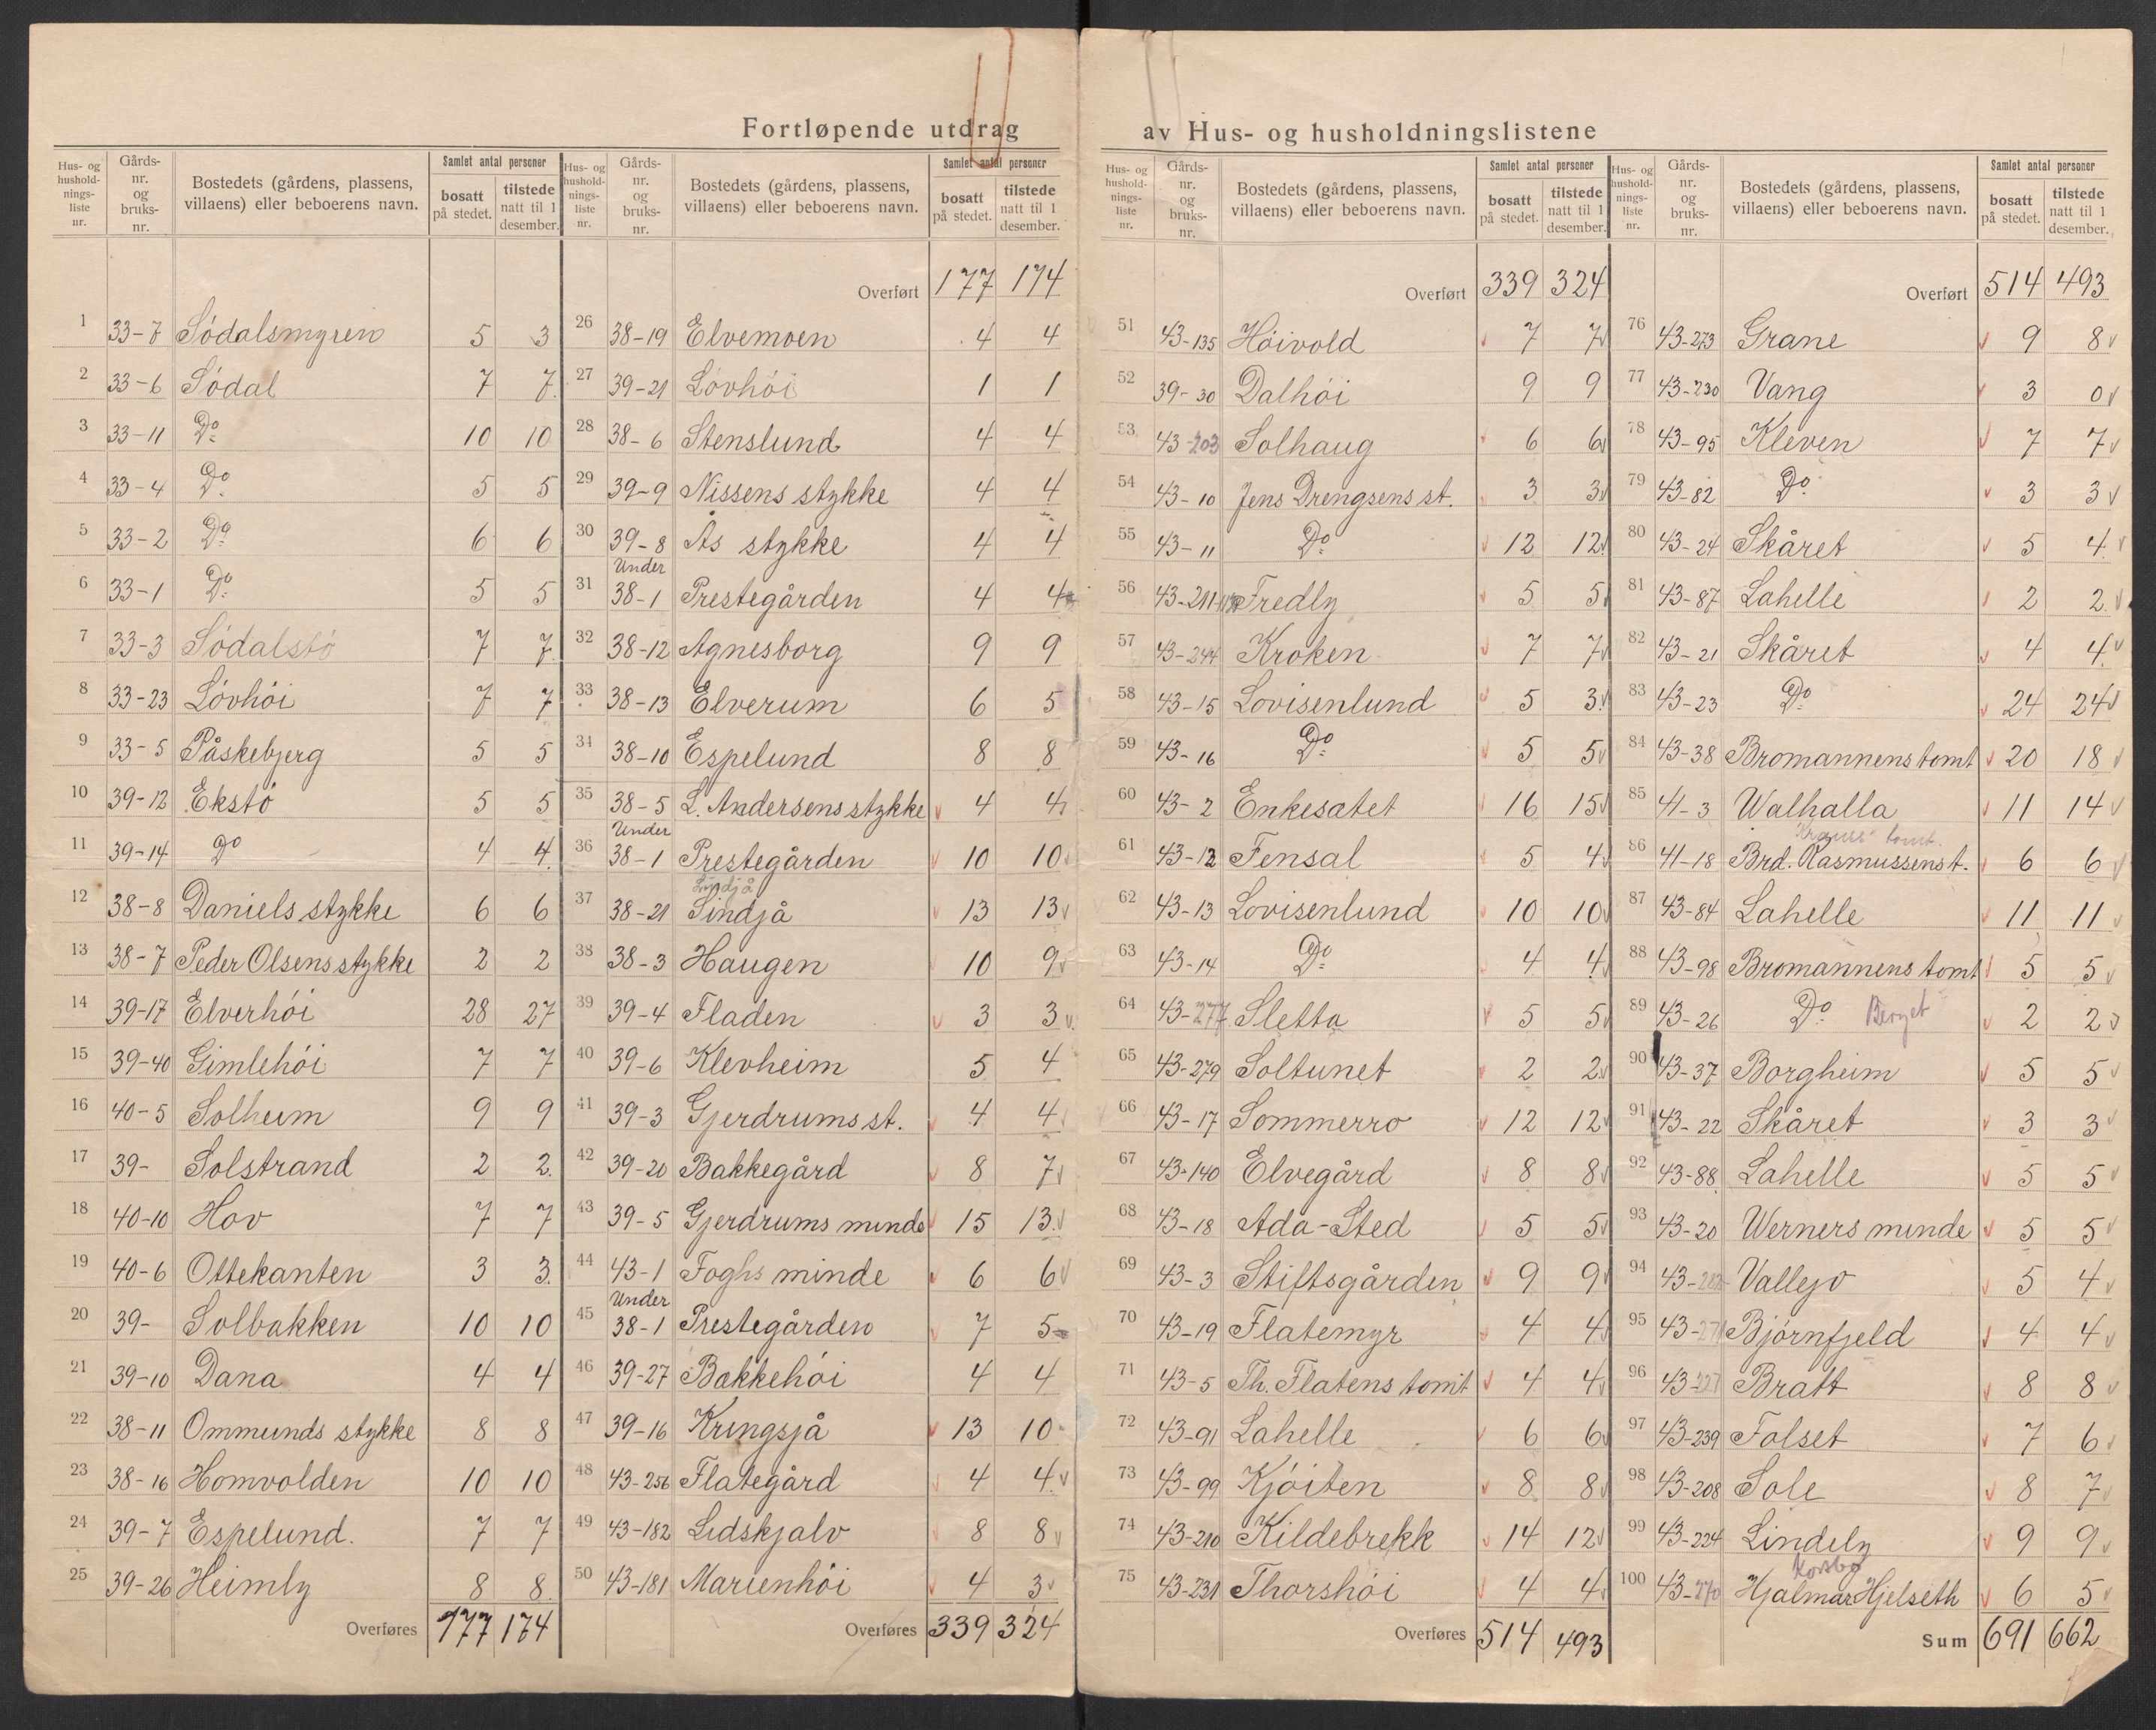 Fortløpende utdrag av Hus- og husholdningslistene
Hus- og husholdnings-liste nr. | Gårds-nr. og bruks-nr. | Bostedets (gårdens, plassens, villaens) eller beboerens navn. | Samlet antal personer | bosatt på stedet. | tilstede natt til 1 desember.
1 33-7 Södalsmyren 5 3
2 33-6 Södal 7 7
3 33-11 Do 10 10
4 33-4 Do 5 5
5 33-2 Do 6 6
6 33-1 Do 5 5
7 33-3 Södalstö 7 7
8 33-23 Lövhöi 7 7
9 33-5 Påskebjerg 5 5
10 39-12 Ekstö 5 5
11 39-14 Do 4 4
12 38-8 Daniels stykke 6 6
13 38-7 Peder Olsens stykke 2 2
14 39-17 Elverhöi 28 27
15 39-40 Gimlehöi 7 7
16 40-5 Solheim 9 9
17 39- Solstrand 2 2
18 40-10 Hov 7 7
19 40-6 Ottekanten 3 3
20 39- Solbakken 10 10
21 39-10 Dana 4 4
22 38-11 Ommunds stykke 8 8
23 38-16 Homvolden 10 10
24 39-7 Espelund. 7 7
25 39-26 Heimly 8 8
Overføres 177 174
Hus- og husholdnings-liste nr. | Gårds-nr. og bruks-nr. | Bostedets (gårdens, plassens, villaens) eller beboerens navn. | Samlet antal personer | bosatt på stedet. | tilstede natt til 1 desember.
Overført 177 174
26 38-19 Elvemoen 4 4
27 39-21 Lövhöi 1 1
28 38-6 Stenslund 4 4
29 39-9 Nissens stykke 4 4
30 39-8 Ås stykke 4 4
31 Under 38-1 Prestegården 4 4
32 38-12 Agnesborg 9 9
33 38-13 Elverum 6 5
34 38-10 Espelund 8 8
35 38-5 L. Andersens stykke 4 4
36 Under 38-1 Prestegården 10 10
37 38-21 Sindjå 13 13
38 38-3 Haugen 10 9
39 39-4 Fladen 3 3
40 39-6 Klevheim 5 4
41 39-3 Gjerdrums st. 4 4
42 39-20 Bakkegård 8 7
43 39-5 Gjerdrums minde 15 13
44 43-1 Foghs minde 6 6
45 Under 38-1 Prestegården 7 5
46 39-27 Bakkehöi 4 4
47 39-16 Kringsjå 13 10
48 43-256 Flategård 4 4
49 43-182 Lidskjalv 8 8
50 43-181 Marienhöi 4 3
Overføres 339 324
Hus- og husholdnings-liste nr. | Gårds-nr. og bruks-nr. | Bostedets (gårdens, plassens, villaens) eller beboerens navn. | Samlet antal personer | bosatt på stedet. | tilstede natt til 1 desember.
Overført 339 324
51 43-135 Höivold 7 7
52 39-30 Dalhöi 9 9
53 43-203 Solhaug 6 6
54 43-10 Jens Drengsens st. 3 3
55 43-11 Do 12 12
56 43-211 Fredly 5 5
57 43-244 Kroken 7 7
58 43-15 Lovisenlund 5 3
59 43-16 Do 5 5
60 43-2 Enkesætet 16 15
61 43-12 Fensal 5 4
62 43-13 Lovisenlund 10 10
63 43-14 Do 4 4
64 43-277 Sletta 5 5
65 43-279 Soltunet 2 2
66 43-17 Sommerro 12 12
67 43-140 Elvegård 8 8
68 43-18 Ada-Sted 5 5
69 43-3 Stiftsgården 9 9
70 43-19 Flatemyr 4 4
71 43-5 Th. Flatens tomt 4 4
72 43-91 Lahelle 6 6
73 43-99 Kjöiten 8 8
74 43-210 Kildebrekk 14 12
75 43-231 Thorshöi 4 4
Overføres 514 493
Hus- og husholdnings-liste nr. | Gårds-nr. og bruks-nr. | Bostedets (gårdens, plassens, villaens) eller beboerens navn. | Samlet antal personer | bosatt på stedet. | tilstede natt til 1 desember.
Overført 514 493
76 43-273 Grane 9 8
77 43-230 Vang 3 0
78 43-95 Kleven 7 7
79 43-82 Do 3 3
80 43-24 Skåret 5 4
81 43-87 Lahelle 2 2
82 43-21 Skåret 4 4
83 43-23 Do 24 24
84 43-38 Bromannens tomt 20 18
85 41-3 Walhalla 11 14
86 41-18 Brd. Rasmussens t. 6 6
87 43-84 Lahelle 11 11
88 43-98 Bromannens tomt 5 5
89 43-26 Do Berget 2 2
90 43-37 Borgheim 5 5
91 43-22 Skåret 3 3
92 43-88 Lahelle 5 5
93 43-20 Werners minde 5 5
94 43- Vallejo 5 4
95 43- Björnfjeld 4 4
96 43-227 Bratt 8 8
97 43-239 Folset 7 6
98 43-208 Sole 8 7
99 43-224 Lindely 9 9
100 43-270 Korsbo Hjalmar Hjelseth 6 5
Sum 691 662